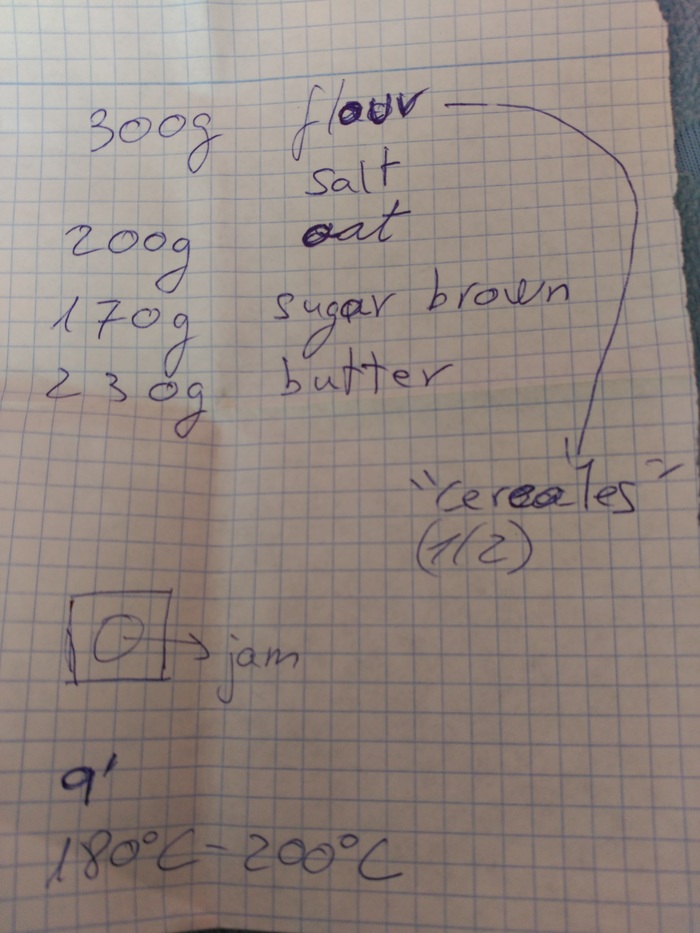 300g flour
salt
200g oat
170g sugar brown
230g butter
"cereales"
(1/2)
jam
9'
180°C - 200°C